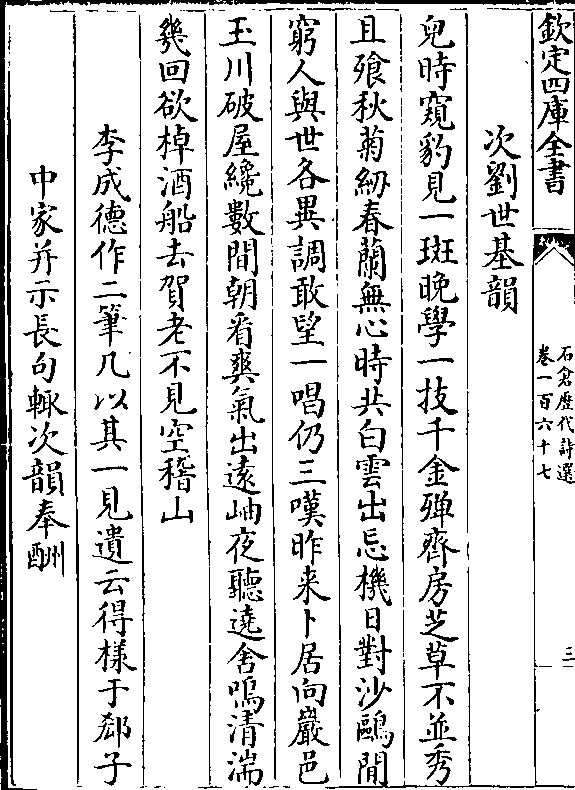 欽定四庫全書
石倉歷代詩選
卷一百六十七
三
次劉世基韻
兒時窺豹見一斑晚學一技千金殫齊房芝草不並秀
且飧秋菊紉春蘭無心時共白雲出忘機日對沙鷗閒
窮人與世各異調敢望一唱仍三嘆昨来卜居向巖邑
玉川破屋纔數間朝看爽氣出遠岫夜聽遶舍鳴清湍
幾回欲棹酒船去賀老不見空稽山
李成德作二筆几以其一見遺云得様于郄子
中家并示長句輙次韻奉酬